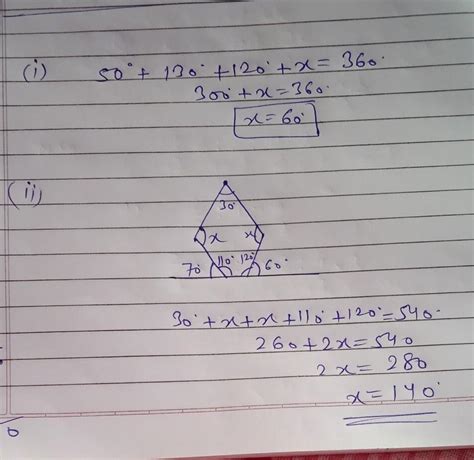 (i) 50° + 130° + 120° + x = 360°
300 + x = 360°
x = 60°
(ii)
30°
x x
70° 110° 120° 60°
30° + x + x + 110° + 120° = 540°
260 + 2x = 540
2x = 280
x = 140°